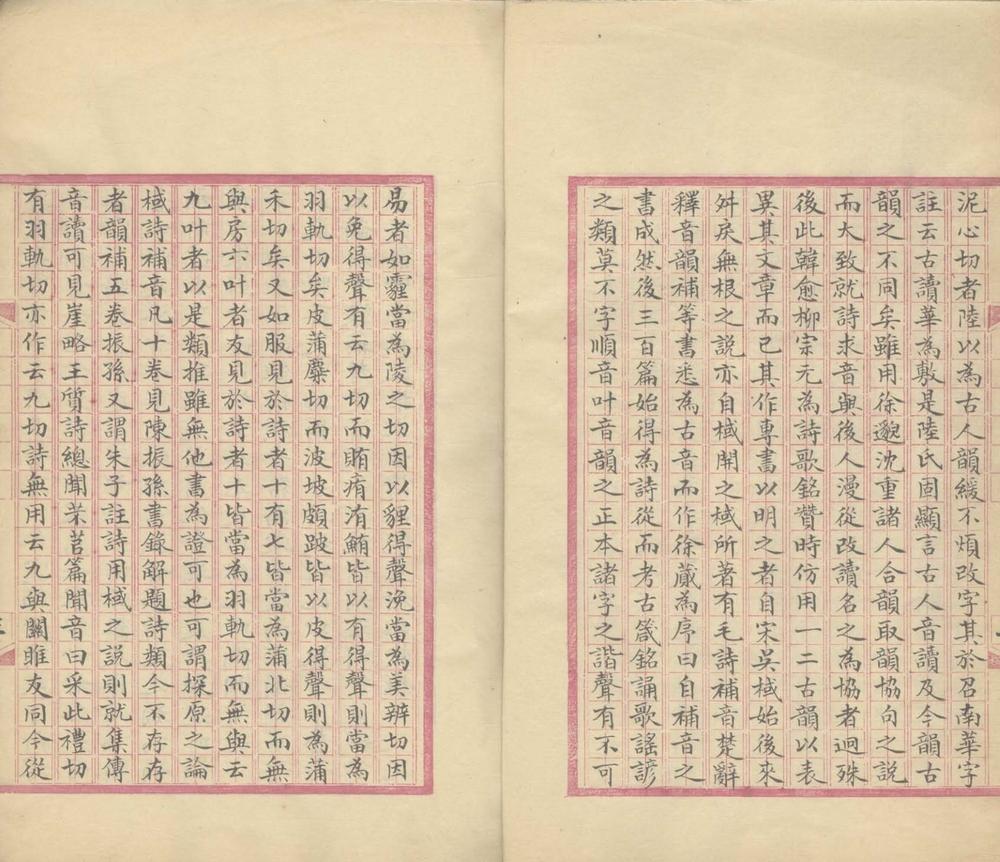 泥心切者陸以為古人韻緩不煩改字其於召南華字
註云古讀華為敷是陸氏固顯言古人音讀及今韻古
韻之不同矣雖用徐邈沈重諸人合韻取韻協句之說
而大致就詩求音與後人漫從改讀名之為協者迥殊
後此韓愈柳宗元為詩歌銘贊時仿用一二古韻以表
異其文章而已其作專書以明之者自宋吳棫始後來
舛戾無根之說亦自棫開之棫所著有毛詩補音楚辭
釋音韻補等書悉為古音而作徐蕆為序曰自補音之
書成然後三百篇始得為詩從而考古箴銘誦歌謠諺
之類莫不字順音叶音韻之正本諸字之諧聲有不可
易者如霾當為陵之切因以貍得聲浼當為美辨切因
以免得聲有云九切而賄痏洧鮪皆以有得聲則當為
羽軌切矣皮蒲麋切而波坡頗跛皆以皮得聲則為蒲
禾切矣又如服見於詩者十有七皆當為蒲北切而無
與房六叶者友見於詩者十皆當為羽軌切而無與云
九叶者以是類推雖無他書為證可也可謂探原之論
棫詩補音凡十卷見陳振孫書錄解題詩類今不存存
者韻補五卷振孫又謂朱子註詩用棫之說則就集傳
音讀可見崖略王質詩總聞芣苢篇聞音曰采此禮切
有羽軌切亦作云九切詩無用云九與關雎友同今從